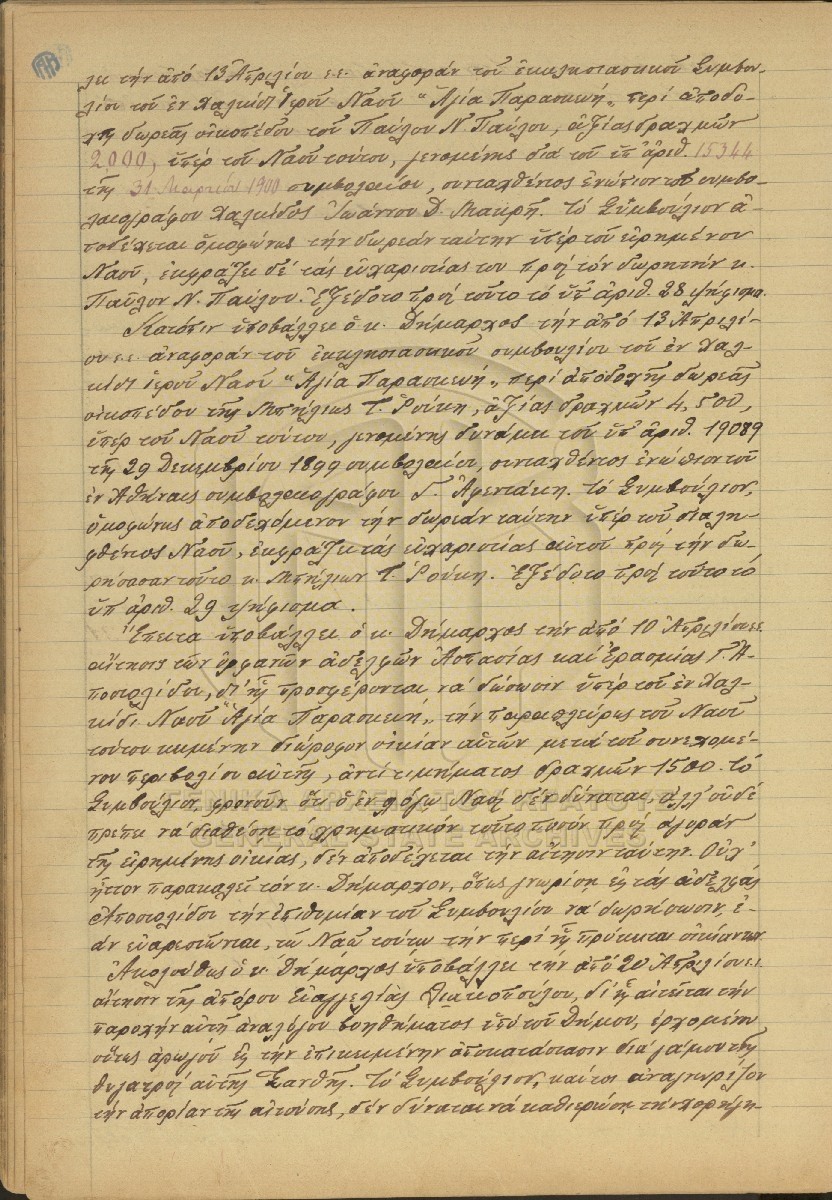 λει τὴν ἀπὸ 13 Ἀπριλίου ἐ.ἔ. ἀναφορὰν τοῦ ἐκκλησιαστικοῦ Συμβου-
λίου τοῦ ἐν Χαλκίδι Ἱεροῦ Ναοῦ "Ἁγία Παρασκευή„ περὶ ἀποδο-
χῆς δωρεᾶς οἰκοπέδου τοῦ Παύλου Ν. Παύλου, ἀξίας δραχμῶν
2000, ὑπὲρ τοῦ Ναοῦ τούτου, γενομένης διὰ τοῦ ὑπ' ἀριθ. 15344
τῆς 31 Μαρτίου 1900 συμβολαίου, συνταχθέντος ἐνώπιον τοῦ συμβο-
λαιογράφου Χαλκίδος Ἰωάννου Δ. Μαυρῆ. Τὸ Συμβούλιον ἀ-
ποδέχεται ὁμοφώνως τὴν δωρεὰν ταύτην ὑπὲρ τοῦ εἰρημένου
Ναοῦ, ἐκφράζει δὲ τὰς εὐχαριστίας του πρὸς τὸν δωρητὴν κ.
Παῦλον Ν. Παύλου. Ἐξεδόθη πρὸς τοῦτο τὸ ὑπ' ἀριθ. 28 ψήφισμα.
Κατόπιν ὑποβάλλει ὁ κ. Δήμαρχος τὴν ἀπὸ 13 Ἀπριλί-
ου ἐ.ἔ. ἀναφορὰν τοῦ ἐκκλησιαστικοῦ συμβουλίου τοῦ ἐν Χαλ-
κίδι ἱεροῦ Ναοῦ "Ἁγία Παρασκευή„ περὶ ἀποδοχῆς δωρεᾶς
οἰκοπέδου τῆς Μπήλιως Τ. Ρούκη, ἀξίας δραχμῶν 4,500,
ὑπὲρ τοῦ Ναοῦ τούτου, γενομένης δυνάμει τοῦ ὑπ' ἀριθ. 19089
τῆς 29 Δεκεμβρίου 1899 συμβολαίου, συνταχθέντος ἐνώπιον τοῦ
ἐν Ἀθήναις συμβολαιογράφου Γ. Ἀφεντάκη. Τὸ Συμβούλιον,
ὁμοφώνως ἀποδεχόμενον τὴν δωρεὰν ταύτην ὑπὲρ τοῦ διαλη-
φθέντος Ναοῦ, ἐκφράζει τὰς εὐχαριστίας αὐτοῦ πρὸς τὴν δω-
ρήσασαν τοῦτο κ. Μπήλιων Τ. Ρούκη. Ἐξεδόθη πρὸς τοῦτο τὸ
ὑπ' ἀριθ. 29 ψήφισμα.
Ἔπειτα ὑποβάλλει ὁ κ. Δήμαρχος τὴν ἀπὸ 10 Ἀπριλίου ἐ.ἔ.
αἴτησιν τῶν ὀρφανῶν ἀδελφῶν Ἀσπασίας καὶ Ἐρασμίας Γ. Ἀ-
ποστολίδου, δι' ἧς προσφέρονται νὰ δώσωσιν ὑπὲρ τοῦ ἐν Χαλ-
κίδι Ναοῦ "Ἁγία Παρασκευή„ τὴν παραπλεύρως τοῦ Ναοῦ
τούτου κειμένην διώροφον οἰκίαν αὐτῶν μετὰ τοῦ συνεχομέ-
νου περιβολίου αὐτῆς, ἀντὶ τιμήματος δραχμῶν 1500. Τὸ
Συμβούλιον, φρονοῦν ὅτι ὁ ἐν λόγῳ Ναὸς δὲν δύναται, ἀλλ' οὐδὲ
πρέπει νὰ διαθέσῃ τὸ χρηματικὸν τοῦτο ποσὸν πρὸς ἀγορὰν
τῆς εἰρημένης οἰκίας, δὲν ἀποδέχεται τὴν αἴτησιν ταύτην. Οὐχ'
ἧττον παρακαλεῖ τὸν κ. Δήμαρχον, ὅπως γνωρίσῃ εἰς τὰς ἀδελφὰς
Ἀποστολίδου τὴν ἐπιθυμίαν τοῦ Συμβουλίου νὰ δωρήσωσιν, ἐ-
ὰν εὐαρεστῶνται, τῷ Ναῷ τούτῳ τὴν περὶ ἧς πρόκειται οἰκίαν των.
Ἀκολούθως ὁ κ. Δήμαρχος ὑποβάλλει τὴν ἀπὸ 20 Ἀπριλίου ἐ.ἔ.
αἴτησιν τῆς ἀπόρου Εὐαγγελίας Διακοπούλου, δι' ἧς αἰτεῖται τὴν
παροχὴν αὐτῇ ἀναλόγου βοηθήματος ὑπὸ τοῦ Δήμου, ἐρχομένου
οὕτως ἀρωγοῦ εἰς τὴν ἐπικειμένην ἀποκατάστασιν διὰ γάμου τῆς
θυγατρὸς αὐτῆς Ξανθῆς. Τὸ Συμβούλιον, καίτοι ἀναγνωρίζον
τὴν ἀπορίαν τῆς αἰτούσης, δὲν δύναται νὰ καθιερώσῃ τὴν χορήγη-
ΓΕΝΙΚΑ ΑΡΧΕΙΑ ΤΟΥ ΚΡΑΤΟΥΣ
GENERAL STATE ARCHIVES